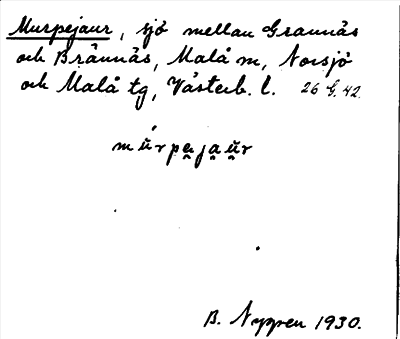 Murpejaur, sjö mellan Grannäs
och Brännäs, Malå m, Norsjö
och Malå tg, Västerb. l. 26 G. 42.
mŭ́rpe̮ja̮ŭ̮r
B. Nyppen 1930.